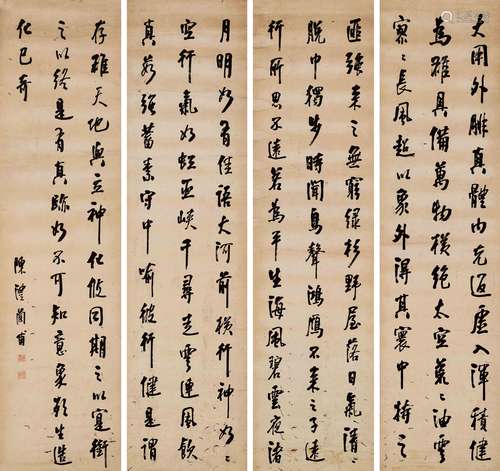 大用外腓真體內充返虛入渾積健
為雄具備萬物橫絕太空荒々油雲
寥々長風超以象外得其寰中持之
匪強來之無窮綠杉野屋落日氣清
脫巾獨步時聞鳥聲鴻鴈不來之子遠
行所思不遠若為平生海風碧雲夜渚
月明如有佳語大河前橫行神如
空行氣如虹巫峽千尋走雲連風飲
真茹強蓄素守中喻彼行健是謂
存雄天地與立神化攸同期之以實御
之以終是有真跡如不可知意象欲生造
化已奇
陳澧蘭甫